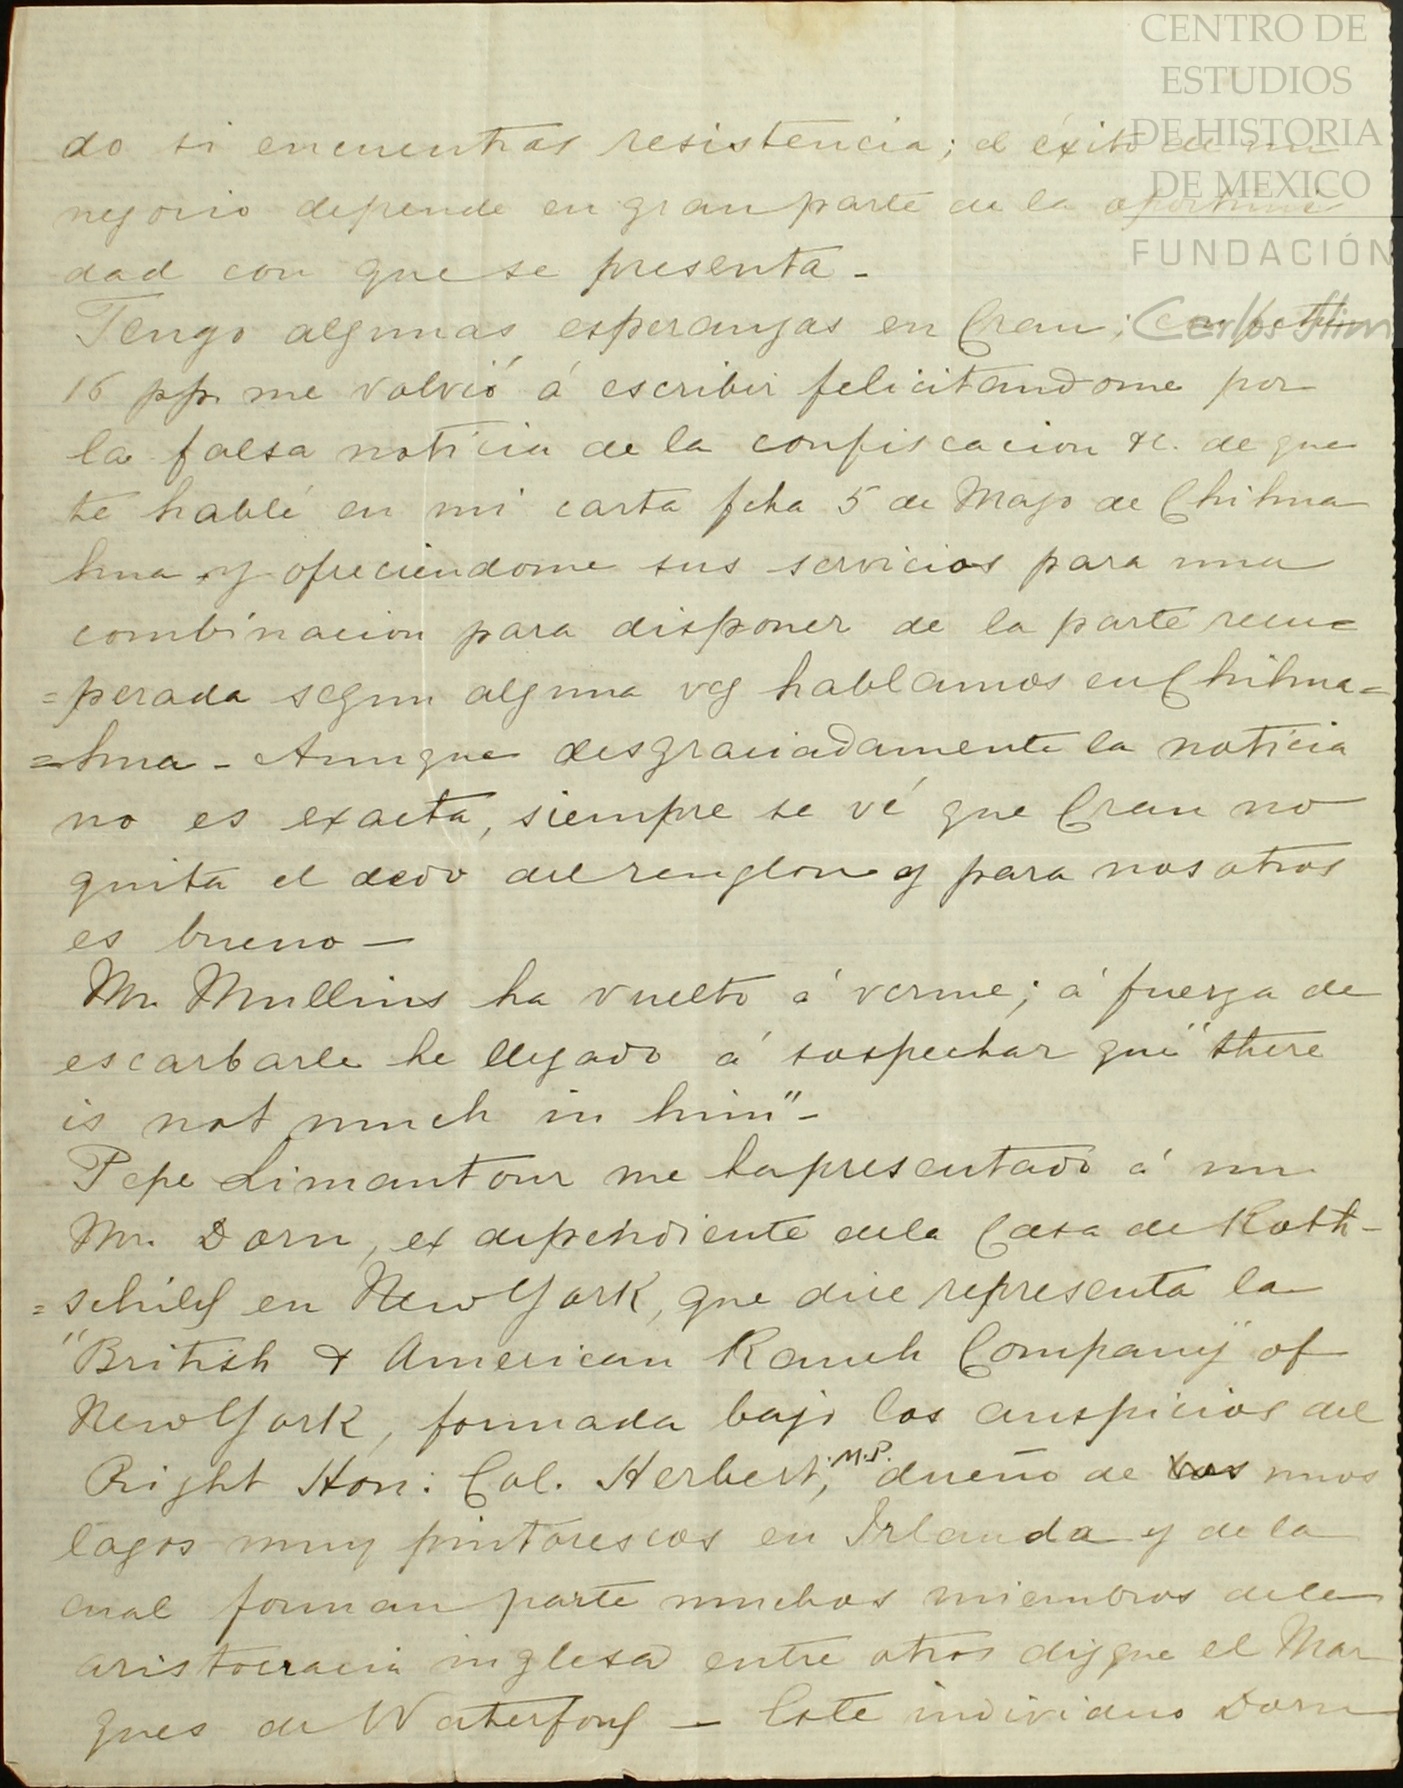 CENTRO DE
ESTUDIOS
DE HISTORIA
DE MEXICO
FUNDACIÓN
Carlos Slim
do si encuentras resistencia; el éxito de un
negocio depende en gran parte de la oportuni
dad con que se presenta -
Tengo algunas esperanzas en Crau; con fecha
16 pp. me volvió á escribir felicitandome por
la falsa noticia de la confiscacion &c. de que
te hablé en mi carta fcha 5 de Mayo de Chihua
hua y ofreciendome sus servicios para una
combinacion para disponer de la parte recu=
=perada segun alguna vez hablamos en Chihua=
=hua - Aunque desgraciadamente la noticia
no es exacta, siempre se vé que Crau no
quita el dedo del renglon y para nosotros
es bueno —
Mr. Mullins ha vuelto á verme; á fuerza de
escarbarle he llegado á sospechar que "there
is not much in him" -
Pepe Limantour me ha presentado á un
Mr. Dorn, ex dependiente de la Casa de Roth-
=schild en New York, que dice representa la
"British & American Ranch Company" of
New York, formada bajo los auspicios del
Right Hon: Col. Herbert, M.P. dueño de unos
lagos muy pintorescos en Irlanda y de la
cual forman parte muchos miembros de la
aristocracia inglesa entre otros dizque el Mar
ques de Waterford — Este individuo Dorn